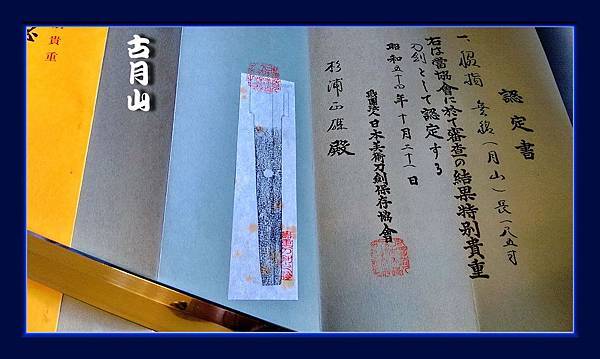 認定書
一、脇指 無銘(月山) 長一、八五寸
右は當協會に於て審査の結果特別貴重
刀剣として認定する
昭和五十四年十月二十八日
財團法人日本美術刀剣保存協會
杉浦正雄殿
古月山
貴重